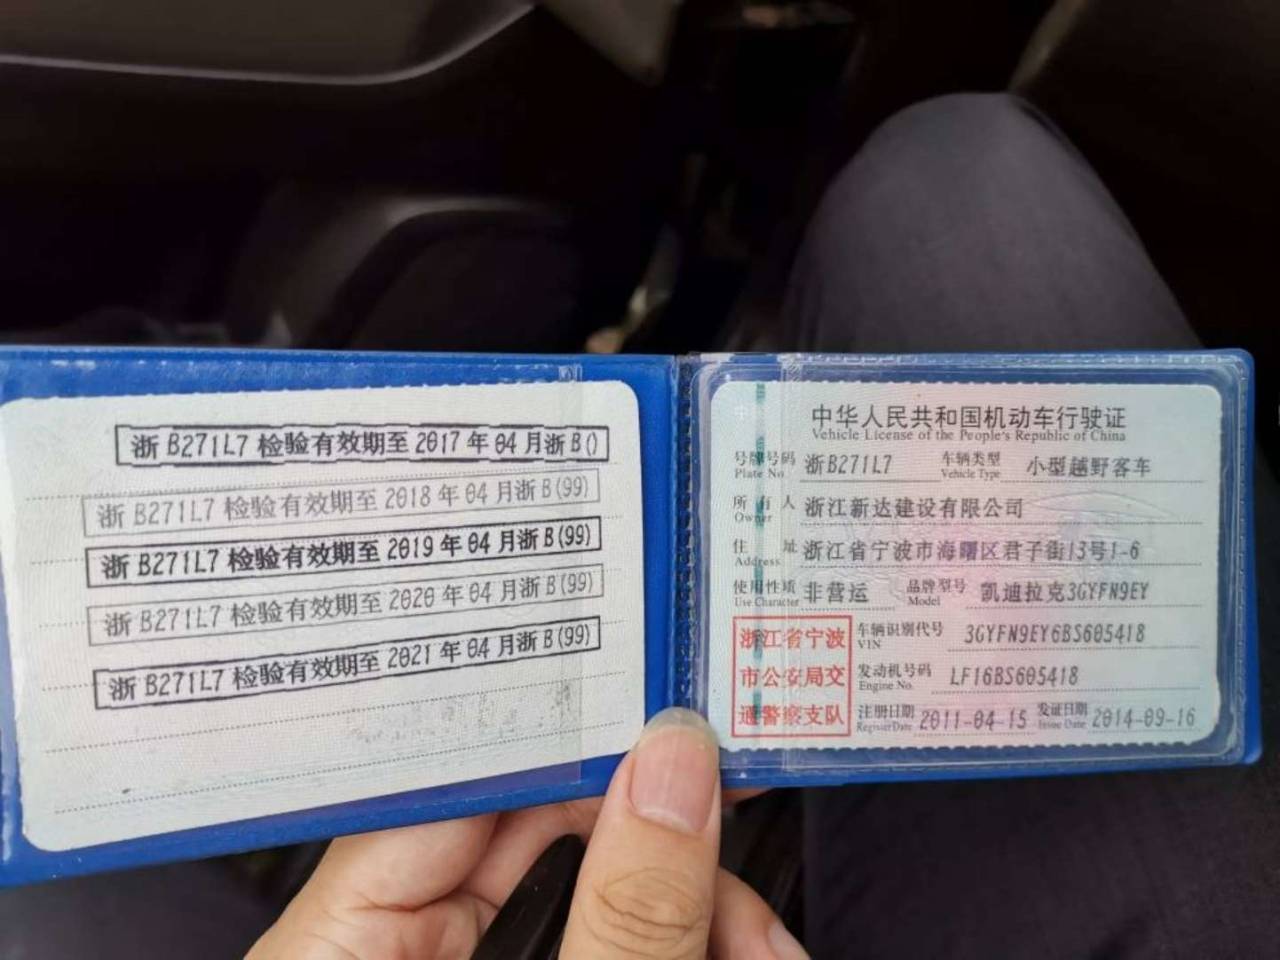 浙B271L7 检验有效期至 2017 年 04 月浙 B()
浙 B271L7 检验有效期至 2018 年 04 月浙 B(99)
浙 B271L7 检验有效期至 2019 年 04 月浙 B(99)
浙 B271L7 检验有效期至 2020 年 04 月浙 B(99)
浙 B271L7 检验有效期至 2021 年 04 月浙 B(99)
中华人民共和国机动车行驶证
Vehicle License of the People's Republic of China
号牌号码 浙B271L7 车辆类型 小型越野客车
Plate No. Vehicle Type
所有人 浙江新达建设有限公司
Owner
住址 浙江省宁波市海曙区君子街13号1-6
Address
使用性质 非营运 品牌型号 凯迪拉克3GYFN9EY
Use Character Model
浙江省宁波
市公安局交
通警察支队
车辆识别代号 3GYFN9EY6BS605418
VIN
发动机号码 LF16BS605418
Engine No.
注册日期 2011-04-15 发证日期 2014-09-16
Register Date Issue Date